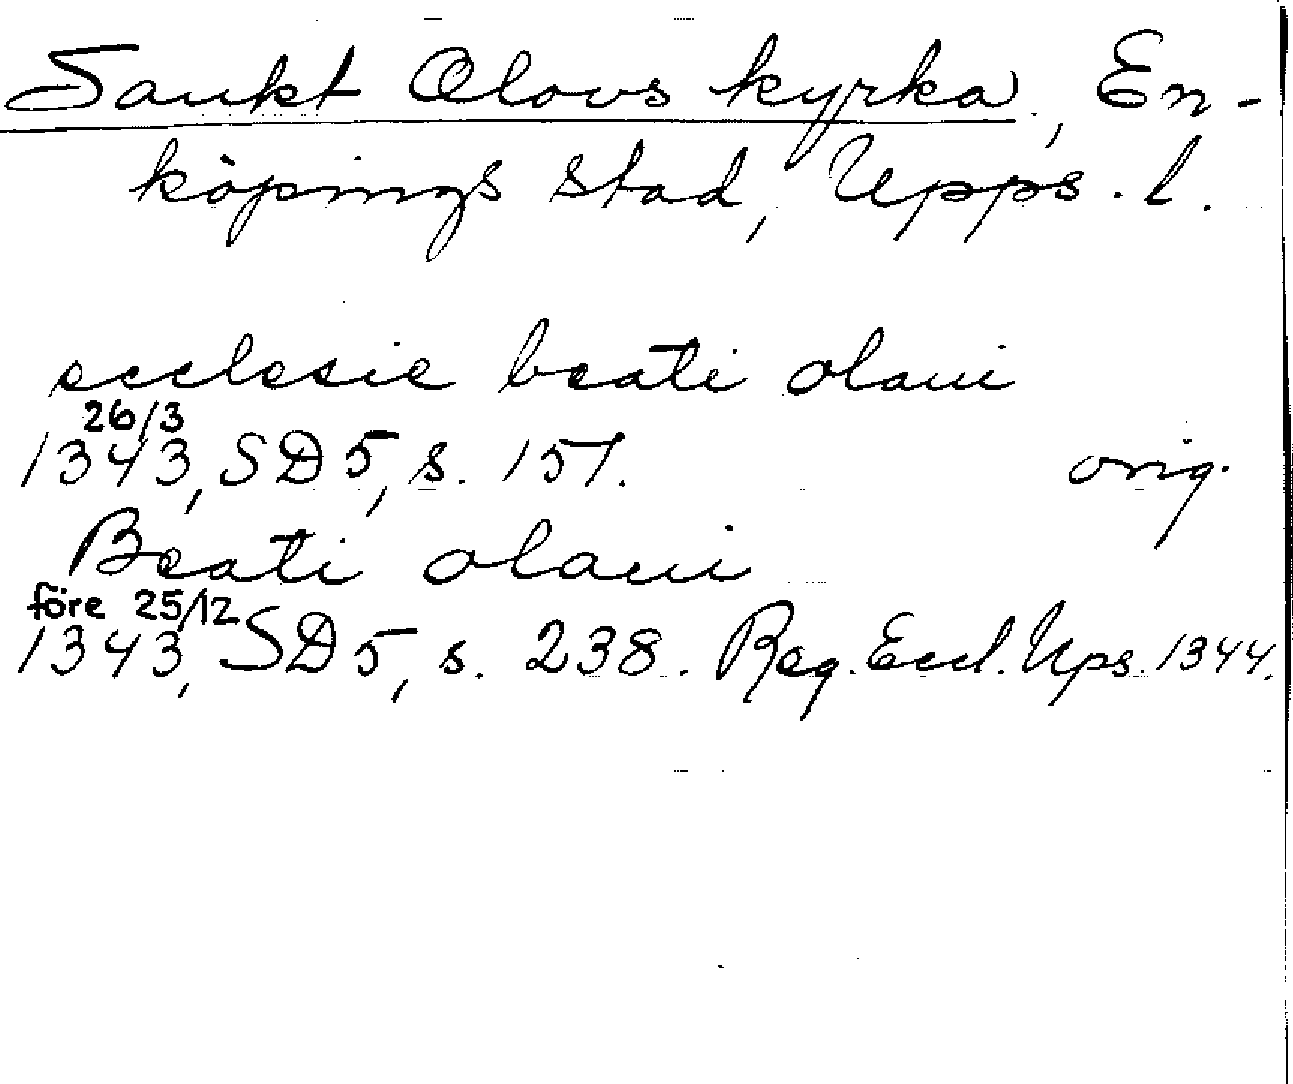 Sankt Olovs kyrka, En-
köpings stad, Upps. l.
ecclesie beati olaui
26/3
1343, SD 5, s. 157. orig.
Beati olaui
före 25/12
1343, SD 5, s. 238. Reg. Eccl. Ups. 1344.